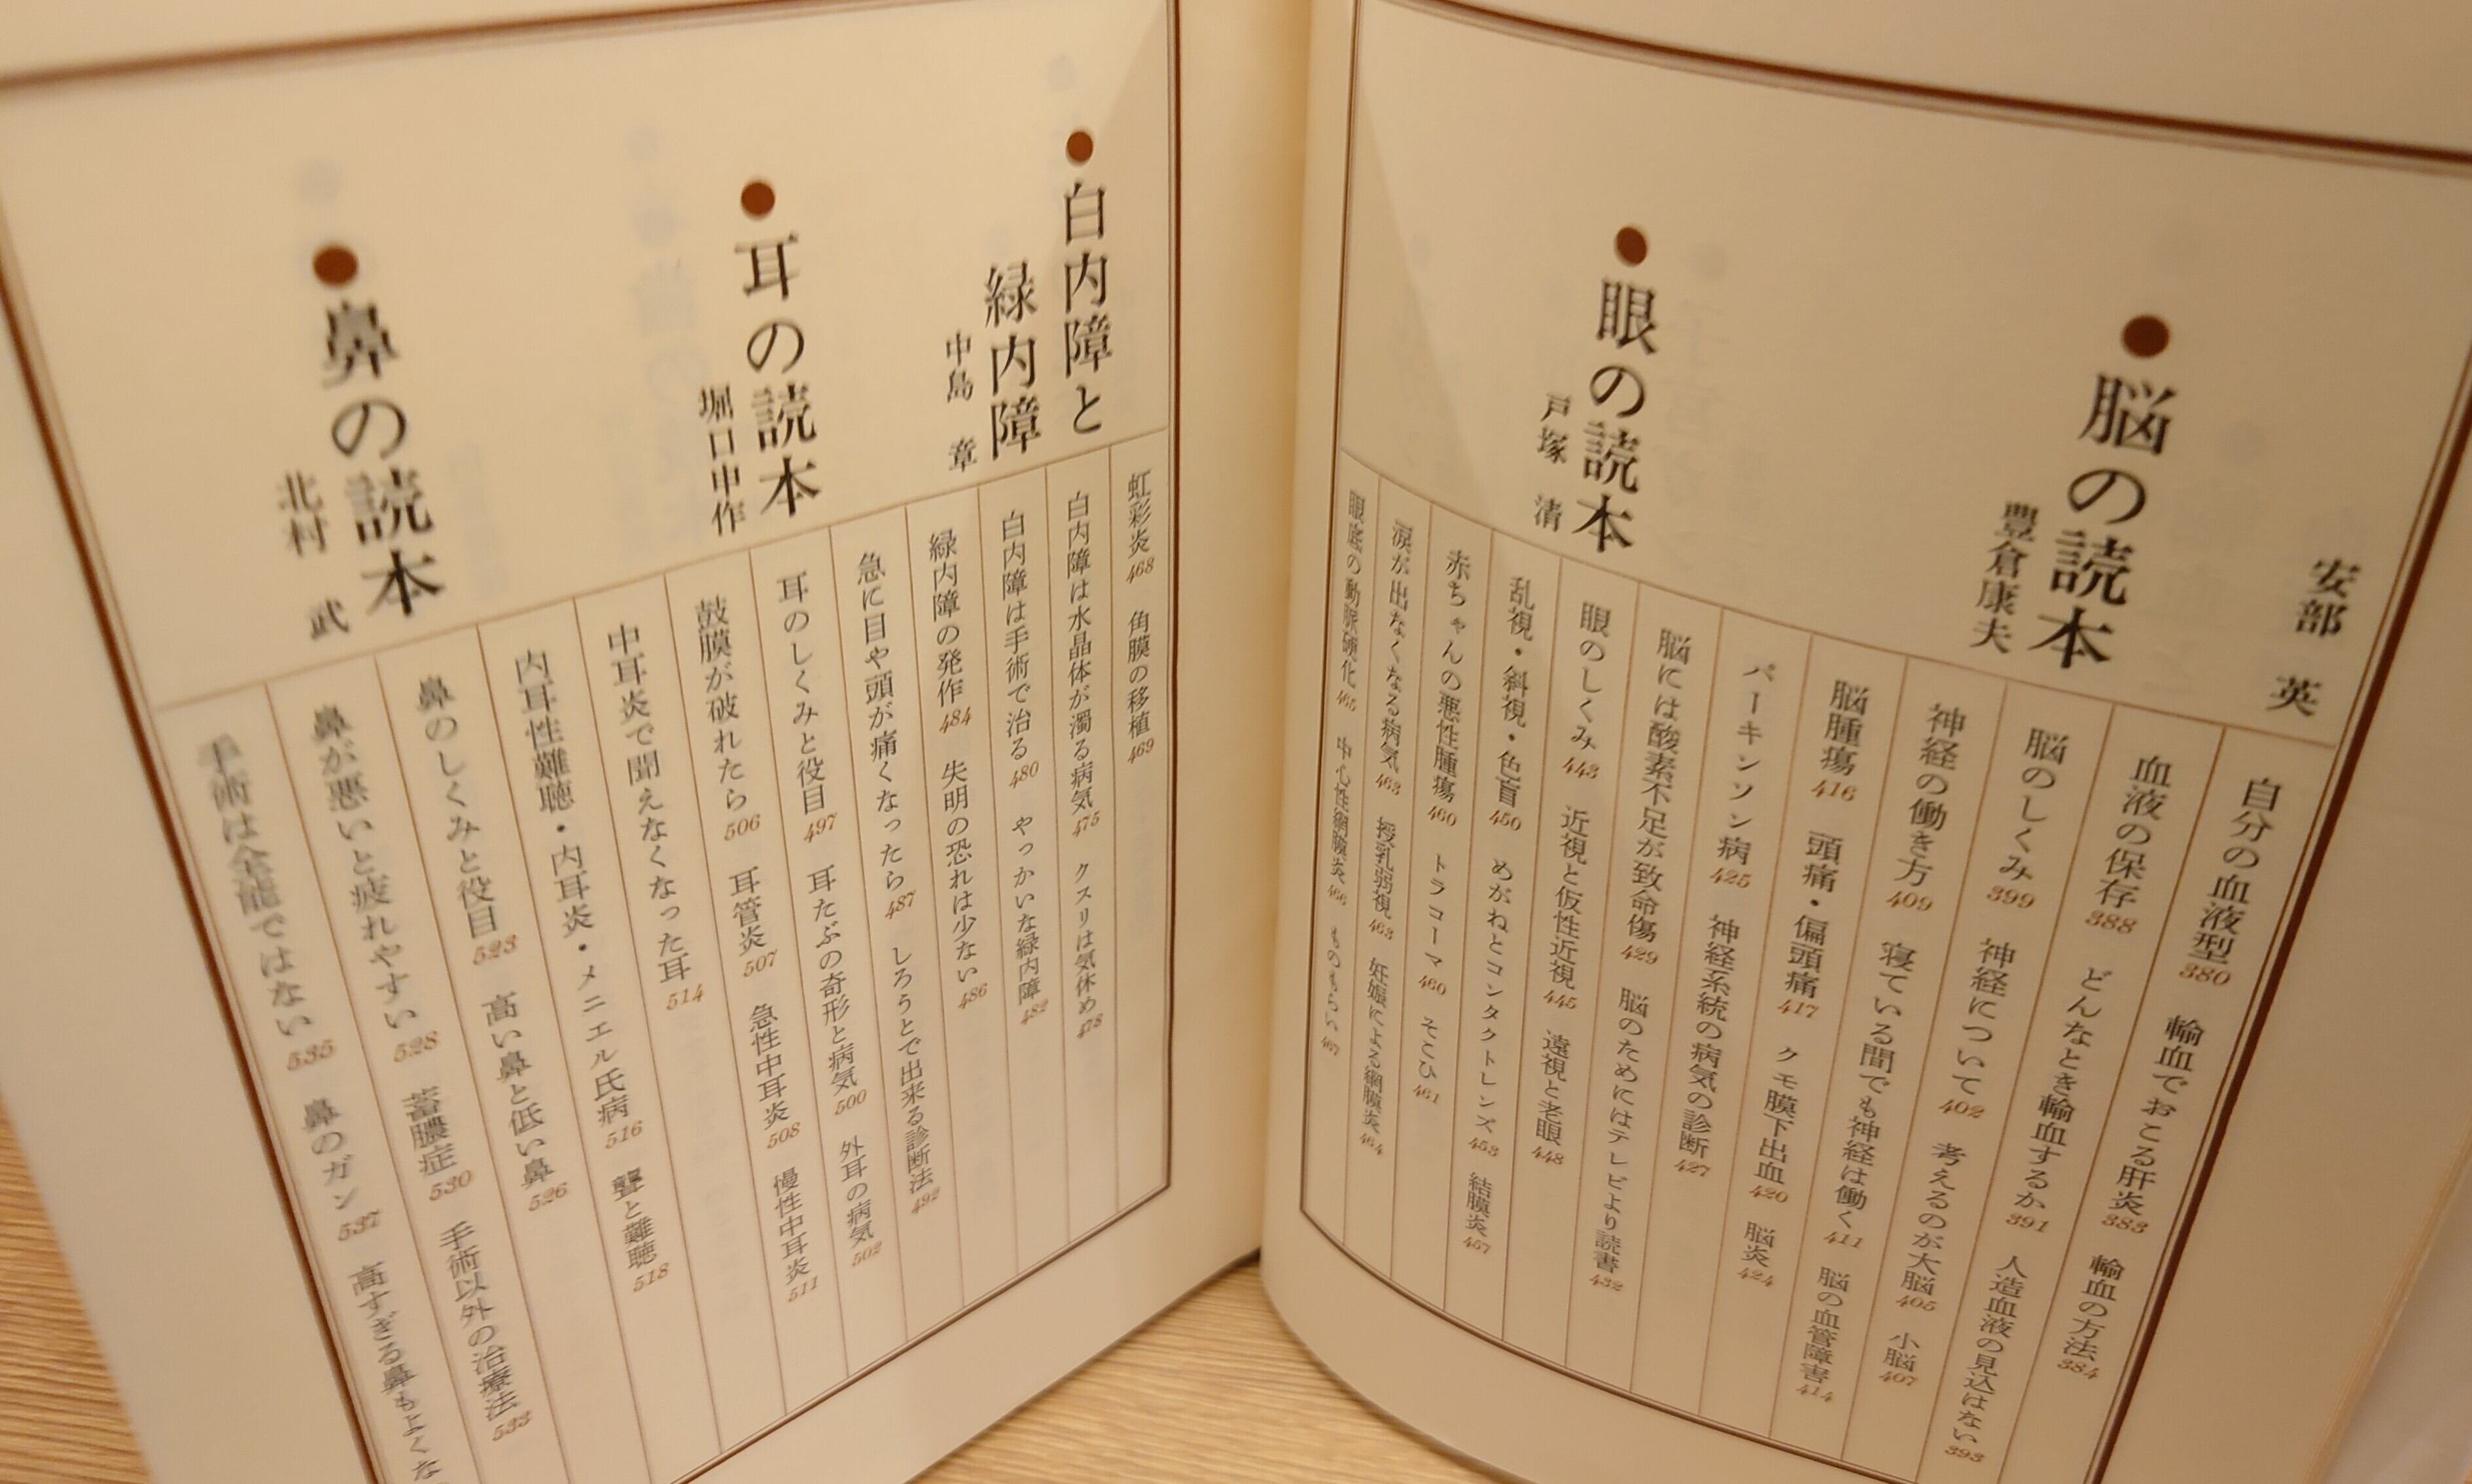 安部 英
自分の血液型 380 輸血でおこる肝炎 383 輸血の方法 384
血液の保存 388 どんなとき輸血するか 391 人造血液の見込はない 393
●脳の読本
豊倉康夫
脳のしくみ 399 神経について 402 考えるのが大脳 405 小脳 407
神経の働き方 409 寝ている間でも神経は働く 411 脳の血管障害 414
脳腫瘍 416 頭痛・偏頭痛 417 クモ膜下出血 420 脳炎 424
パーキンソン病 425 神経系統の病気の診断 427
脳には酸素不足が致命傷 429 脳のためにはテレビより読書 432
●眼の読本
戸塚 清
眼のしくみ 443 近視と仮性近視 445 遠視と老眼 448
乱視・斜視・色盲 450 めがねとコンタクトレンズ 453 結膜炎 457
赤ちゃんの悪性腫瘍 460 トラコーマ 460 そこひ 461
涙が出なくなる病気 463 授乳弱視 463 妊娠による網膜炎 464
眼底の動脈硬化 465 中心性網膜炎 466 ものもらい 467
虹彩炎 468 角膜の移植 469
●白内障と
緑内障
中島 章
白内障は水晶体が濁る病気 475 クスリは気休め 478
白内障は手術で治る 480 やっかいな緑内障 482
緑内障の発作 484 失明の恐れは少ない 486
急に目や頭が痛くなったら 487 しろうとで出来る診断法 492
●耳の読本
堀口申作
耳のしくみと役目 497 耳たぶの奇形と病気 500 外耳の病気 502
鼓膜が破れたら 506 耳管炎 507 急性中耳炎 508 慢性中耳炎 511
中耳炎で聞えなくなった耳 514
内耳性難聴・内耳炎・メニエル氏病 516 聾と難聴 518
●鼻の読本
北村 武
鼻のしくみと役目 523 高い鼻と低い鼻 526
鼻が悪いと疲れやすい 528 蓄膿症 530 手術以外の治療法 533
手術は全能ではない 535 鼻のガン 537 高すぎる鼻もよくな